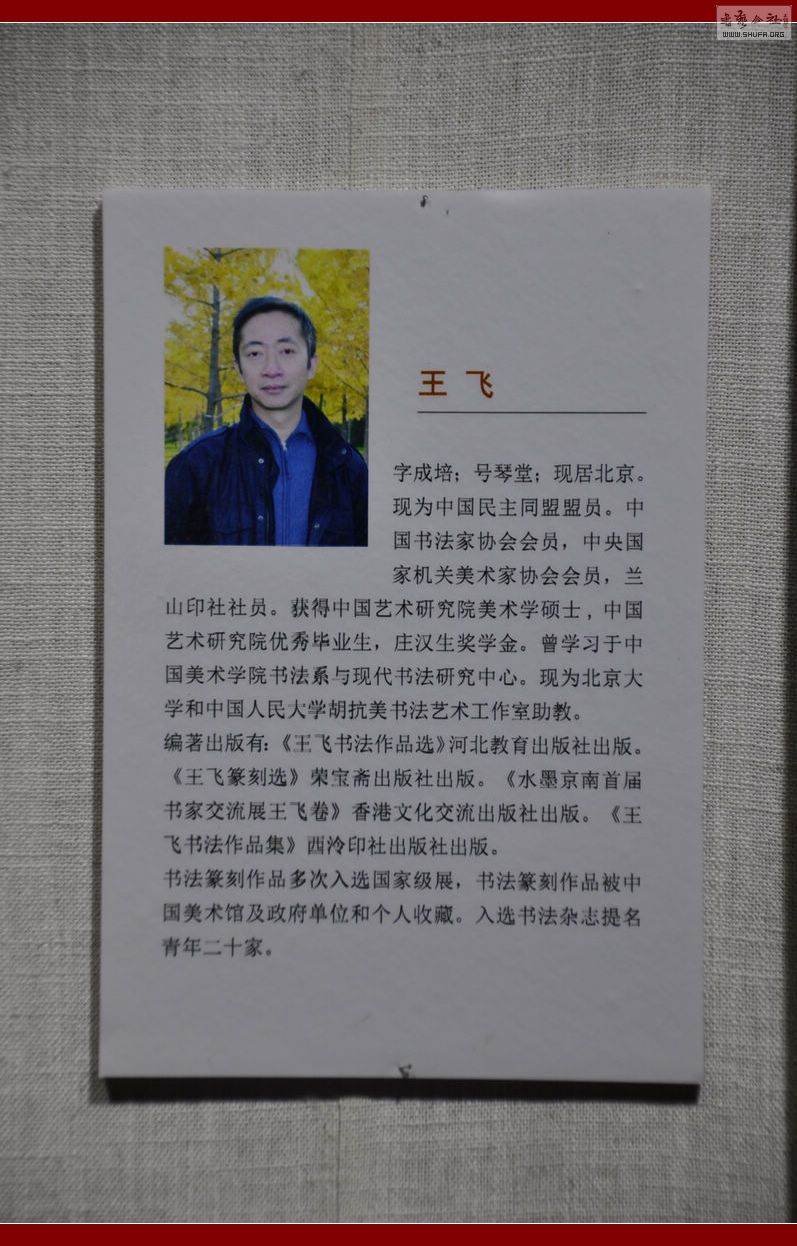 WWW.SHUFA.ORG
王 飞
字成培；号琴堂；现居北京。
现为中国民主同盟盟员。中
国书法家协会会员，中央国
家机关美术家协会会员，兰
山印社社员。获得中国艺术研究院美术学硕士，中国
艺术研究院优秀毕业生，庄汉生奖学金。曾学习于中
国美术学院书法系与现代书法研究中心。现为北京大
学和中国人民大学胡抗美书法艺术工作室助教。
编著出版有：《王飞书法作品选》河北教育出版社出版。
《王飞篆刻选》荣宝斋出版社出版。《水墨京南首届
书家交流展王飞卷》香港文化交流出版社出版。《王
飞书法作品集》西泠印社出版社出版。
书法篆刻作品多次入选国家级展，书法篆刻作品被中
国美术馆及政府单位和个人收藏。入选书法杂志提名
青年二十家。